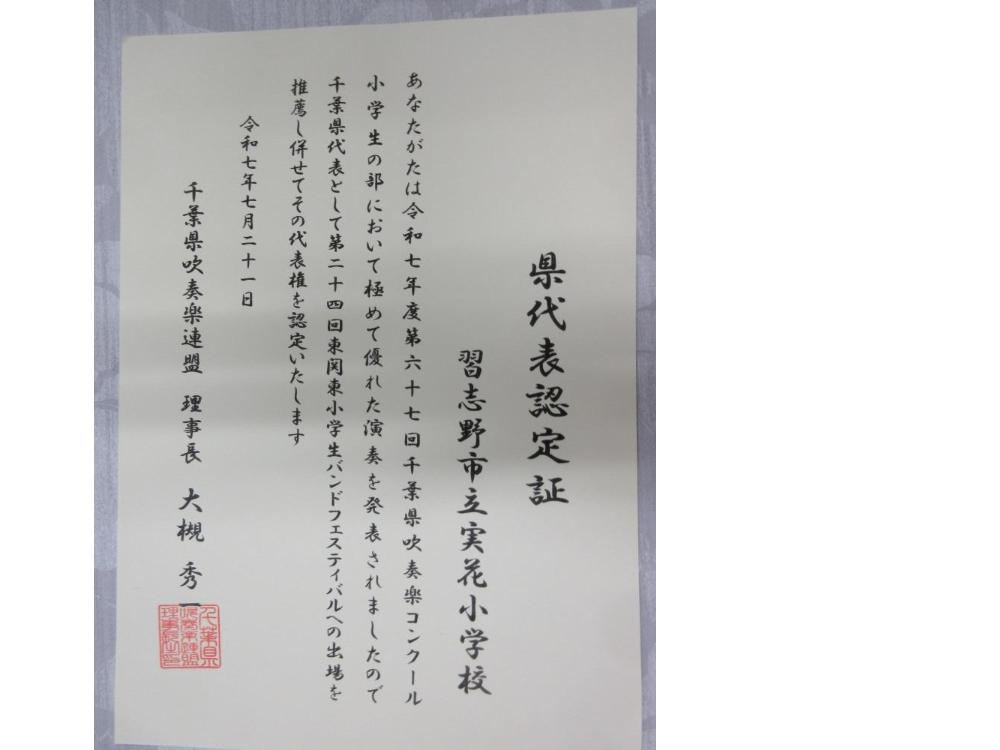 県代表認定証
習志野市立実花小学校
あなたがたは令和七年度第六十七回千葉県吹奏楽コンクール
小学生の部において極めて優れた演奏を発表されましたので
千葉県代表として第二十四回東関東小学生バンドフェスティバルへの出場を
推薦し併せてその代表権を認定いたします
令和七年七月二十一日
千葉県吹奏楽連盟 理事長 大槻 秀一
千葉県
吹奏楽連盟
理事長之印